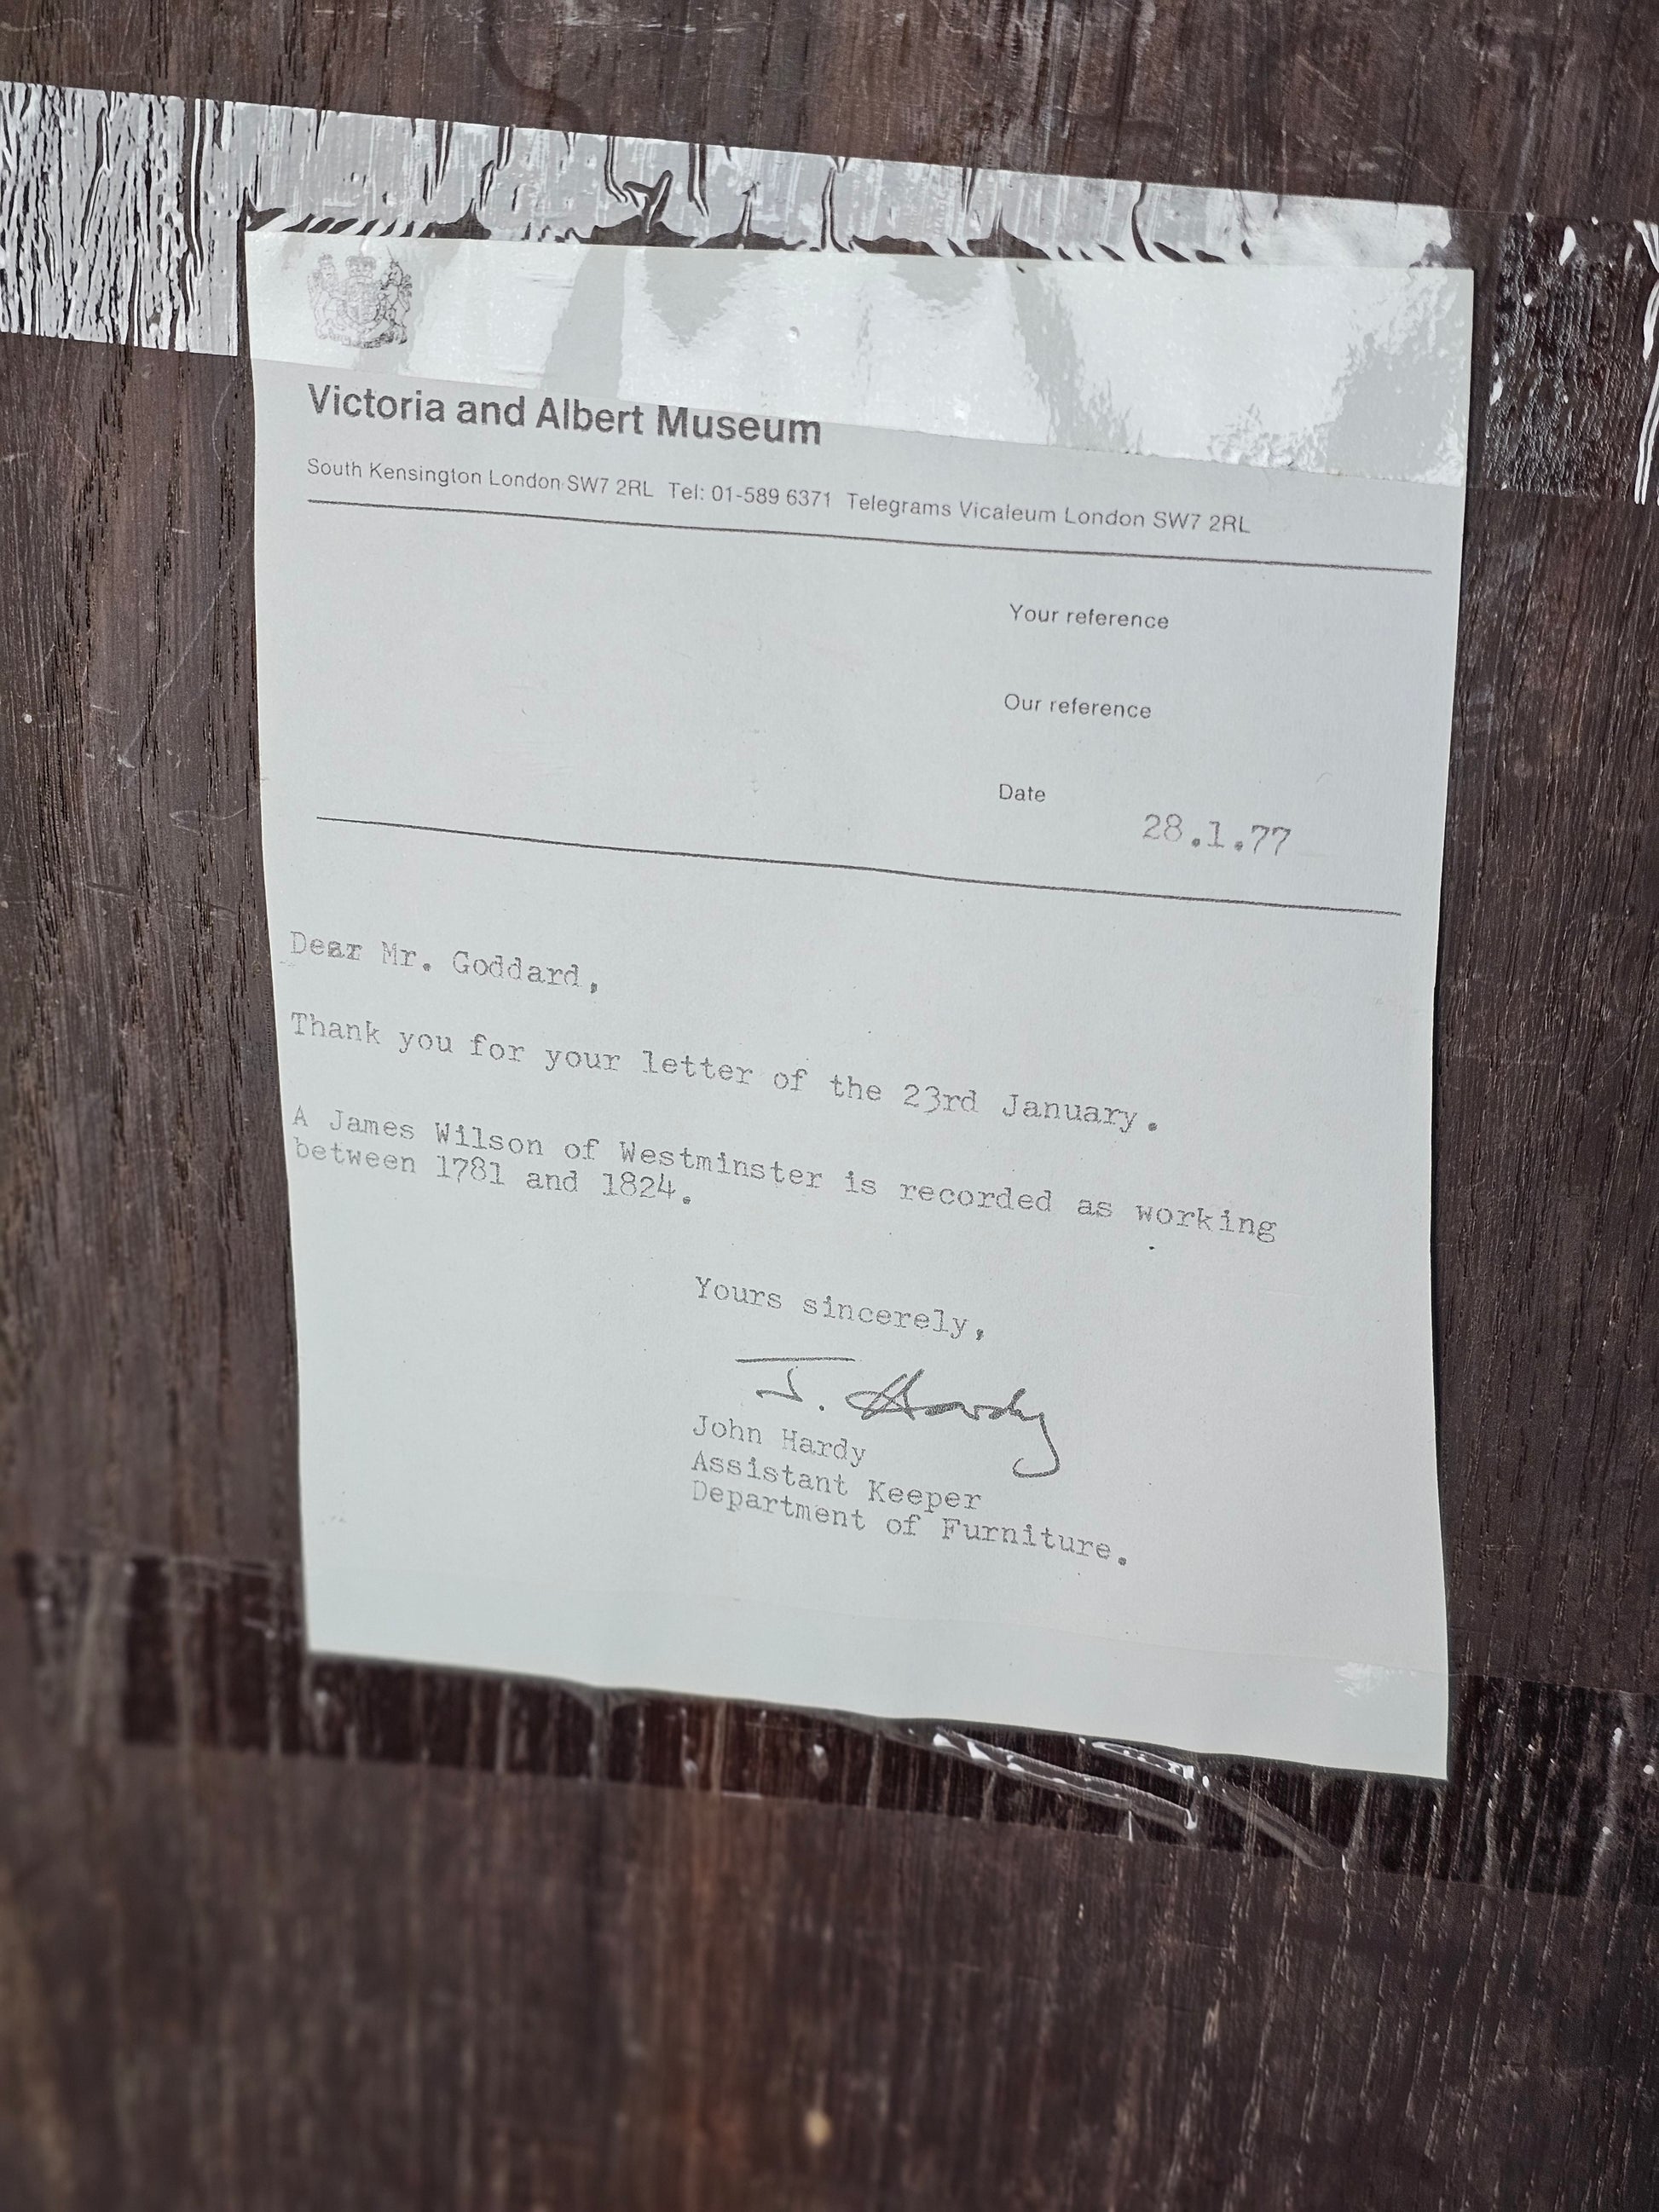 Victoria and Albert Museum
South Kensington London SW7 2RL Tel: 01-589 6371 Telegrams Vicaleum London SW7 2RL
Your reference
Our reference
Date
28.1.77
Dear Mr. Goddard,
Thank you for your letter of the 23rd January.
A James Wilson of Westminster is recorded as working
between 1781 and 1824.
Yours sincerely,
J. Hardy
John Hardy
Assistant Keeper
Department of Furniture.